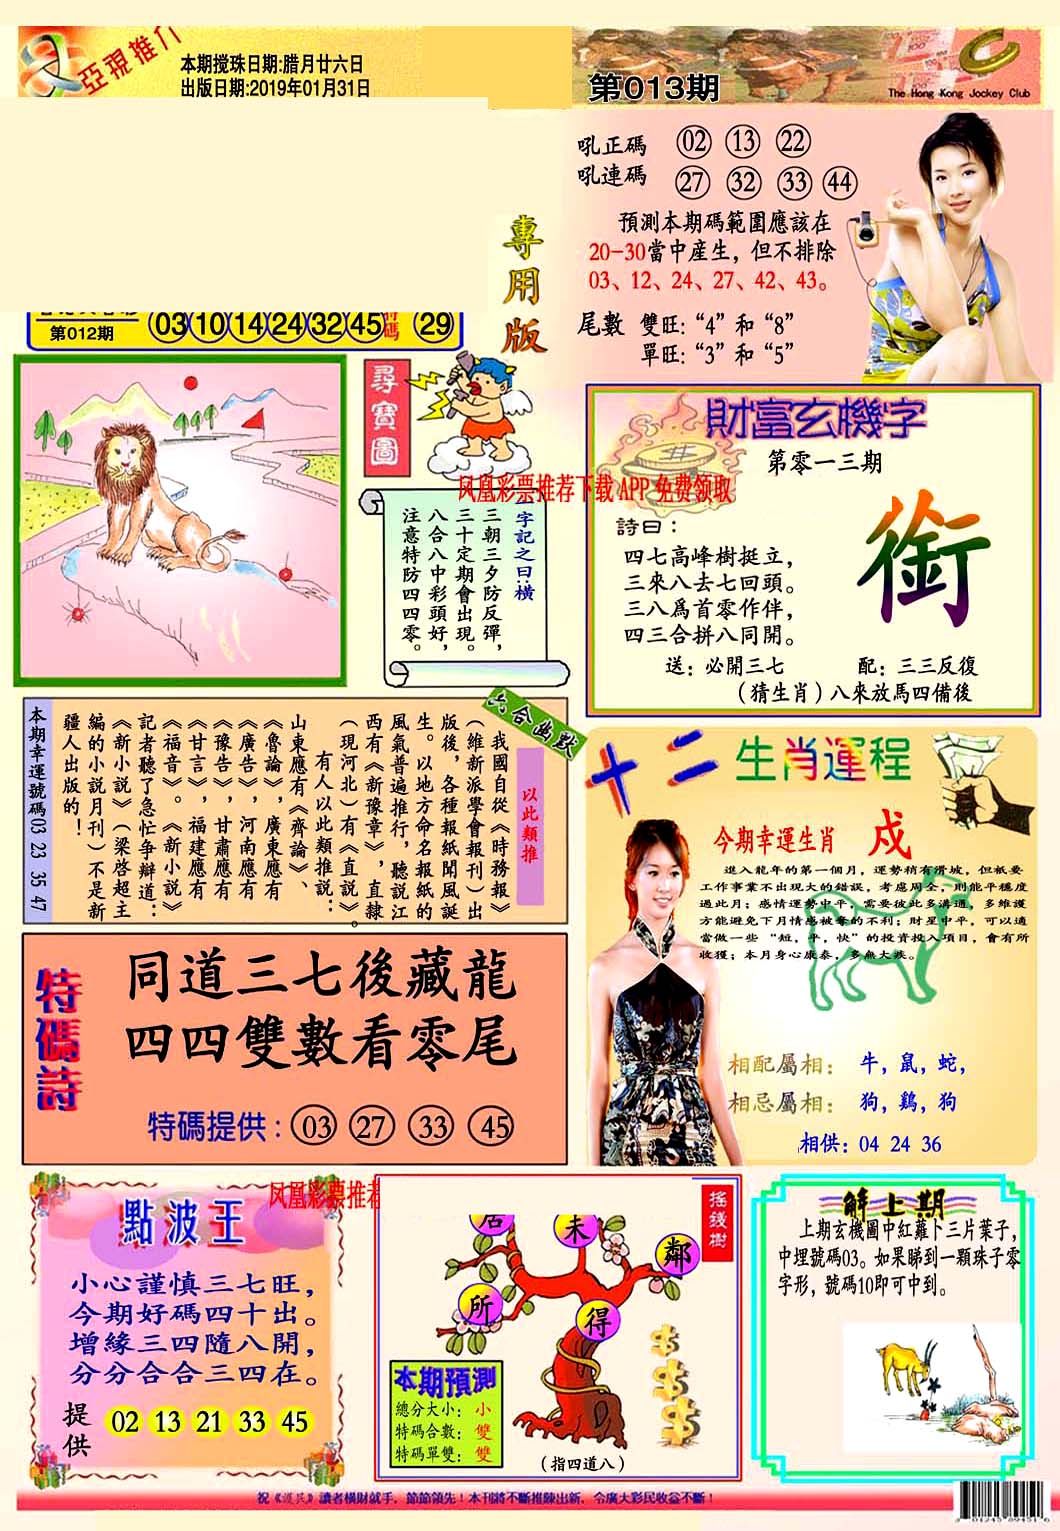 亞視推介
本期搅珠日期:腊月廿六日
出版日期:2019年01月31日
第013期
The Hong Kong Jockey Club
專用版
第012期
03 10 14 24 32 45 特碼 29
吼正碼 02 13 22
吼連碼 27 32 33 44
預測本期碼範圍應該在
20-30當中産生，但不排除
03、12、24、27、42、43。
尾數 雙旺:“4”和“8”
單旺:“3”和“5”
尋寶圖
凤凰彩票推荐下载APP免费领取
字記之曰:橫
三朝三夕防反彈，
三十定期會出現。
八合八中彩頭好，
注意特防四四零。
財富玄機字
第零一三期
詩曰：
四七高峰樹挺立，
三來八去七回頭。
三八爲首零作伴，
四三合拼八同開。
銜
送：必開三七
配：三三反復
（猜生肖）八來放馬四備後
六合幽默
以此類推
我國自從《時務報》
（維新派學會報刊）出
版後，各種報紙聞風誕
生。以地方命名報紙的
風氣普遍推行，聽説江
西有《新豫章》，直隸
（現河北）有《直説》。
有人以此類推説：
山東應有《齊論》、
《魯論》，廣東應有
《廣告》，河南應有
《豫告》，甘肅應有
《甘言》，福建應有
《福音》。《新小説》
記者聽了急忙争辯道：
《新小説》（梁啓超主
編的小説月刊）不是新
疆人出版的！
本期幸運號碼03 23 35 47
十二生肖運程
今期幸運生肖 戍
進入龍年的第一個月，運勢稍有滑坡，但衹要
工作事業不出現大的錯誤，考慮周全，則能平穩度
過此月；感情運勢中平，需要彼此多溝通，多維護
方能避免下月情感被奪的不利；財星中平，可以適
當做一些“短，平，快”的投資投入項目，會有所
收獲；本月身心康泰，多無大疾。
相配屬相： 牛，鼠，蛇，
相忌屬相： 狗，鷄，狗
相供：04 24 36
特碼詩
同道三七後藏龍
四四雙數看零尾
特碼提供：03 27 33 45
凤凰彩票推荐
點波王
小心謹慎三七旺，
今期好碼四十出。
增緣三四隨八開，
分分合合三四在。
提供 02 13 21 33 45
搖錢樹
居 未 鄰
所 得
本期預測
總分大小：小
特码合數：雙
特码單雙：雙
（指四道八）
解上期
上期玄機圖中紅蘿卜三片葉子，
中埋號碼03。如果睇到一顆珠子零
字形，號碼10即可中到。
讀者横財就手，節節領先！本刊將不斷推陳出新，令廣大彩民收益不斷！